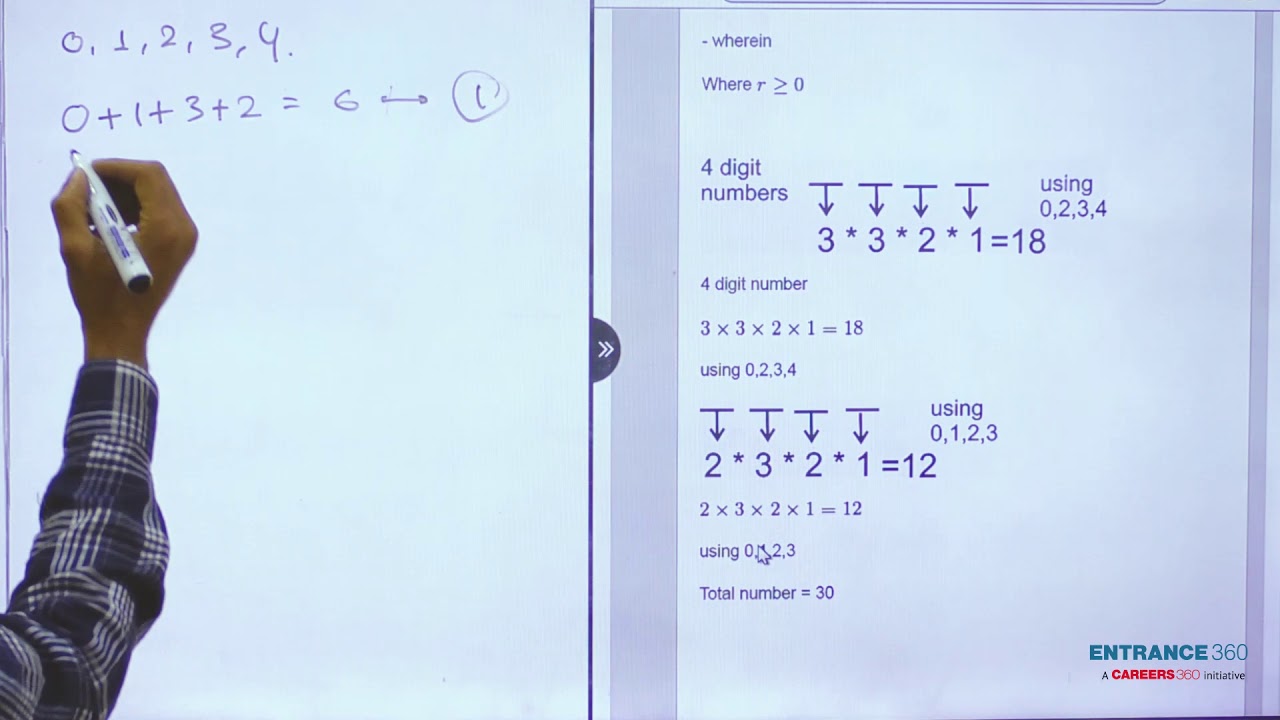 0, 1, 2, 3, 4.
0 + 1 + 3 + 2 = 6 ↔ 1
- wherein
Where r ≥ 0
4 digit
numbers
using
0,2,3,4
3 * 3 * 2 * 1=18
4 digit number
3 × 3 × 2 × 1 = 18
using 0,2,3,4
using
0,1,2,3
2 * 3 * 2 * 1 =12
2 × 3 × 2 × 1 = 12
using 0, 2,3
Total number = 30
ENTRANCE 360
A CAREERS360 initiative